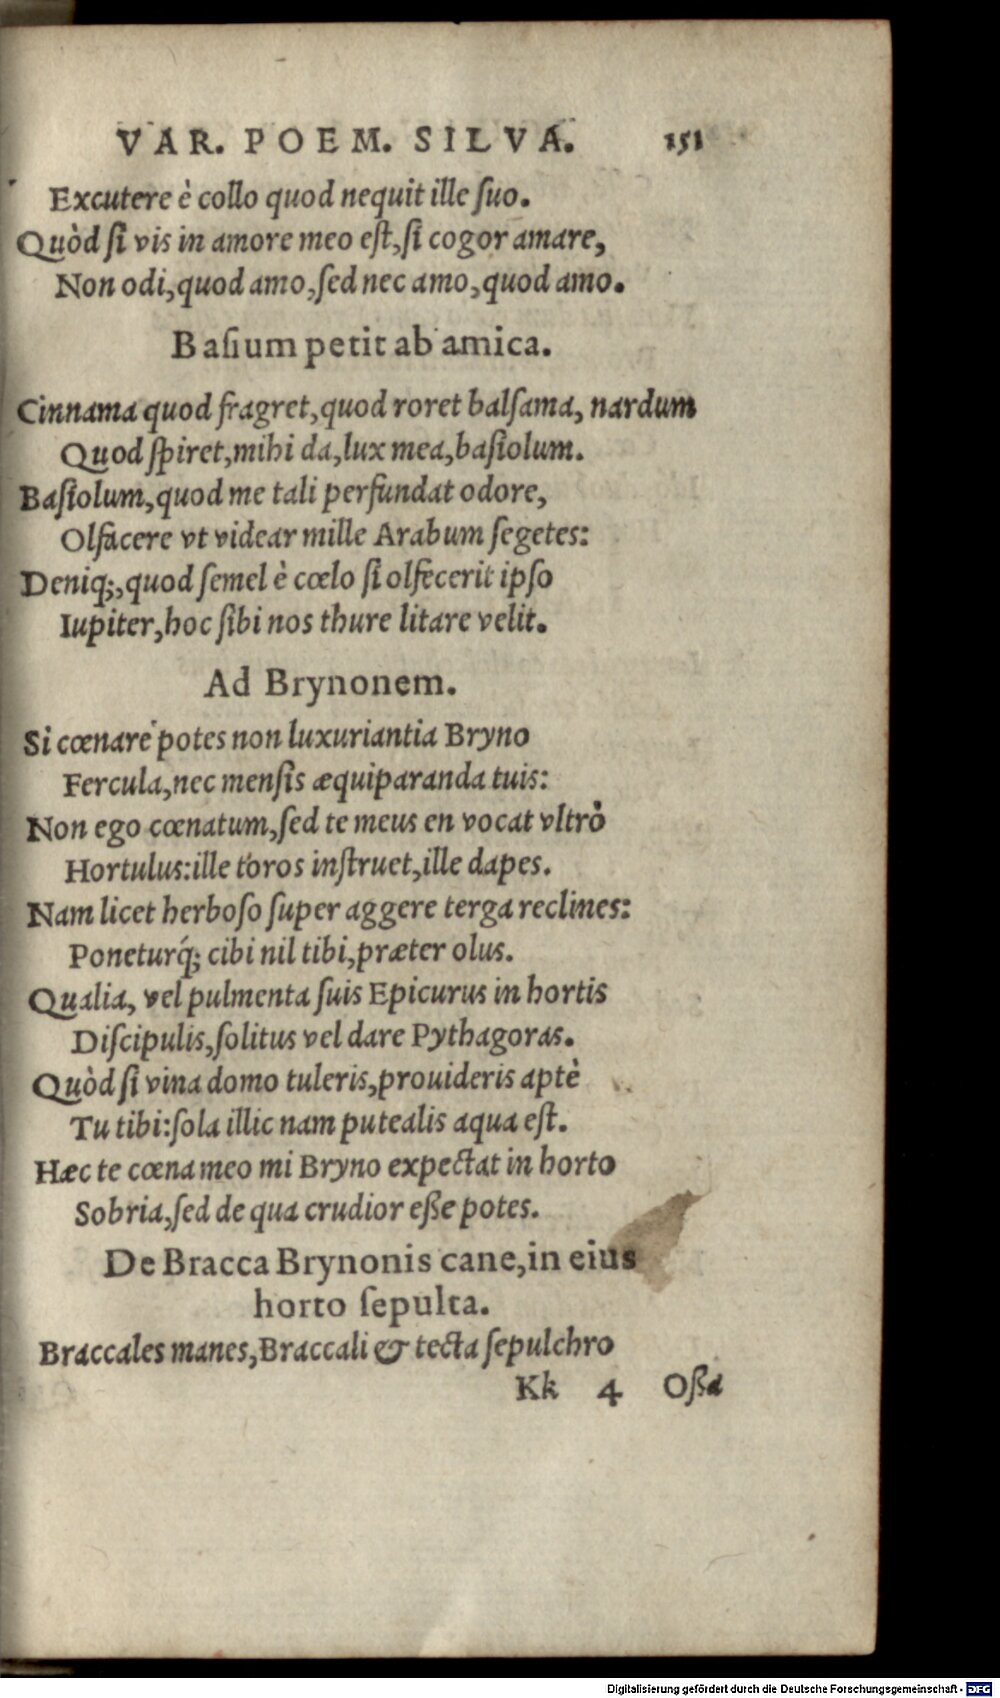 VAR. POEM. SILVA. 151
Excutere è collo quod nequit ille ſuo.
Quòd ſi vis in amore meo eſt, ſi cogor amare,
Non odi, quod amo, ſed nec amo, quod amo.
Baſium petit ab amica.
Cinnama quod fragret, quod roret balſama, nardum
Quod ſpiret, mihi da, lux mea, baſiolum.
Baſiolum, quod me tali perfundat odore,
Olfacere vt videar mille Arabum ſegetes:
Deniq;, quod ſemel è cœlo ſi olfecerit ipſo
Iupiter, hoc ſibi nos thure litare velit.
Ad Brynonem.
Si cœnare potes non luxuriantia Bryno
Fercula, nec menſis æquiparanda tuis:
Non ego cœnatum, ſed te meus en vocat vltrò
Hortulus: ille toros inſtruet, ille dapes.
Nam licet herboſo ſuper aggere terga reclines:
Poneturq́; cibi nil tibi, præter olus.
Qualia, vel pulmenta ſuis Epicurus in hortis
Diſcipulis, ſolitus vel dare Pythagoras.
Quòd ſi vina domo tuleris, prouideris aptè
Tu tibi: ſola illic nam putealis aqua eſt.
Hæc te cœna meo mi Bryno expectat in horto
Sobria, ſed de qua crudior eße potes.
De Bracca Brynonis cane, in eius
horto ſepulta.
Braccales manes, Braccali & tecta ſepulchro
Kk 4 Oßa
Digitalisierung gefördert durch die Deutsche Forschungsgemeinschaft - DFG